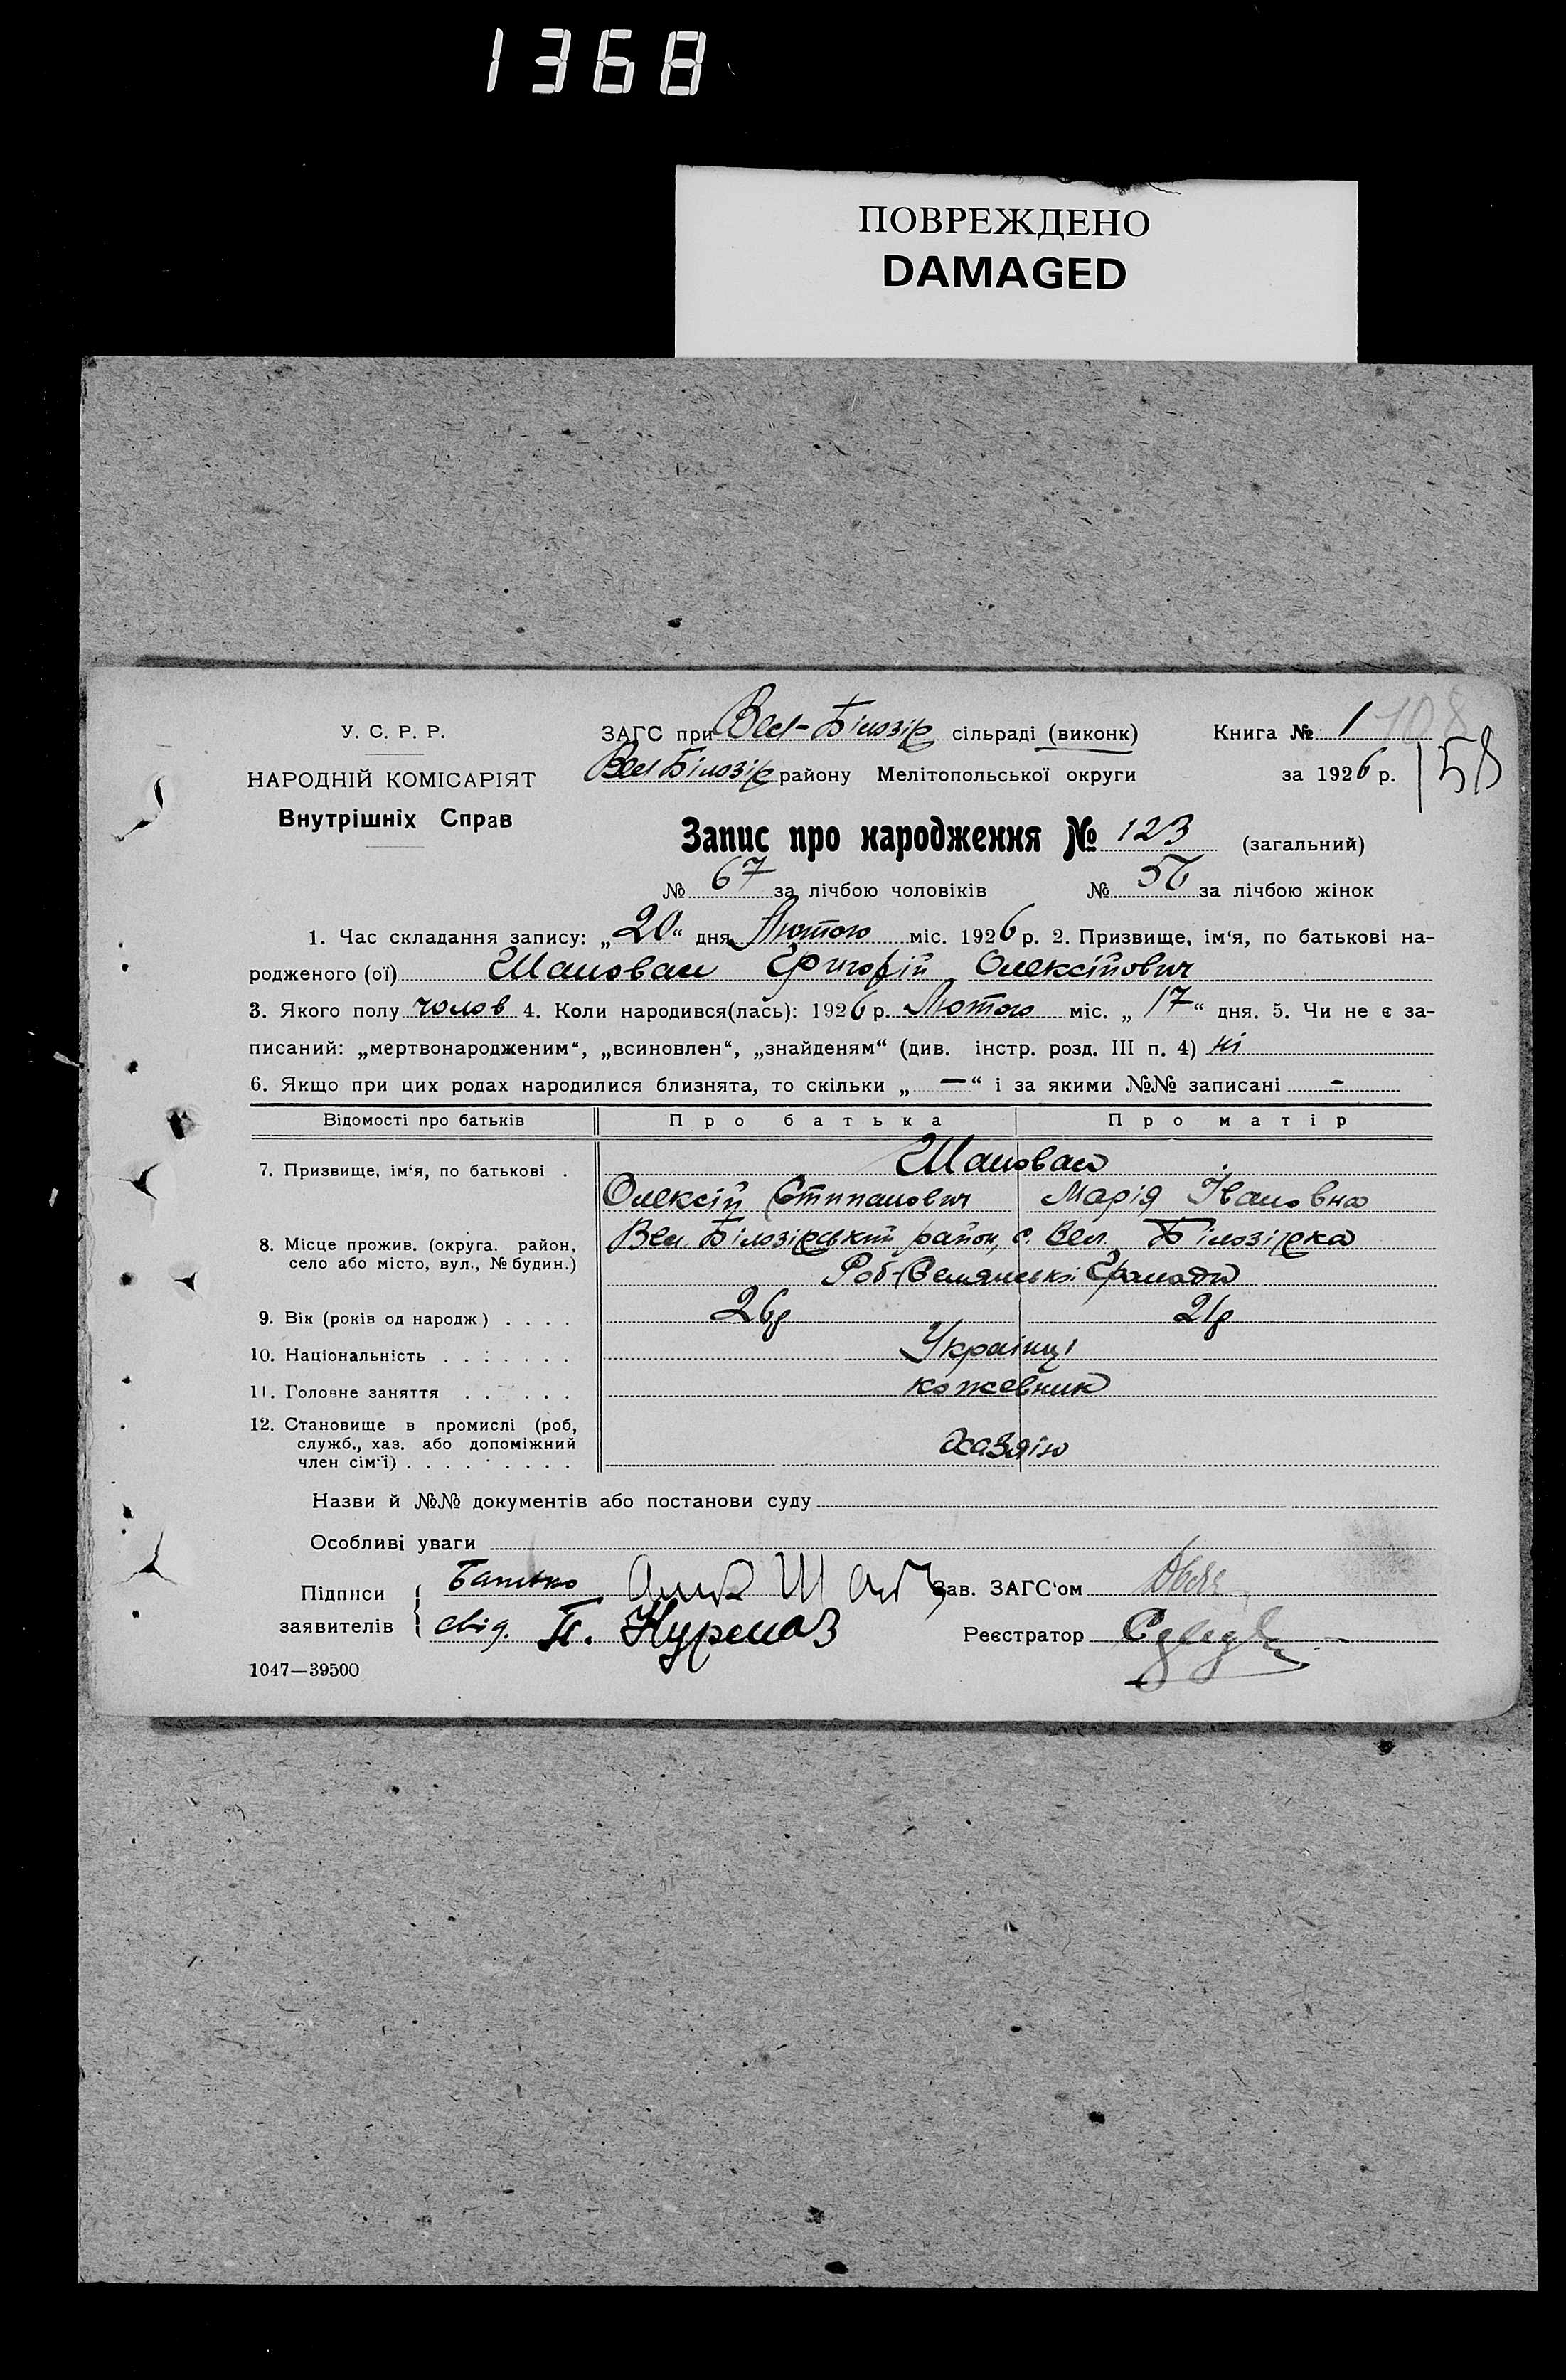 1368
ПОВРЕЖДЕНО
DAMAGED
У. С. Р. Р.
НАРОДНІЙ КОМІСАРІЯТ
Внутрішніх Справ
ЗАГС при Вел-Білозір сільраді (виконк)
Вел Білозір району Мелітопольської округи
Книга № 1 108
за 1926 р. 58
Запис про народження № 123 (загальний)
№ 67 за лічбою чоловіків № 56 за лічбою жінок
1. Час складання запису: „20“ дня Лютого міс. 1926 р. 2. Призвище, ім'я, по батькові на-
родженого (ої) Шаповал Григорій Олексійович
3. Якого полу чолов 4. Коли народився(лась): 1926 р. Лютого міс. „17“ дня. 5. Чи не є за-
писаний: „мертвонародженим“, „всиновлен“, „знайденям“ (див. інстр. розд. III п. 4) ні
6. Якщо при цих родах народилися близнята, то скільки „—“ і за якими №№ записані -
Відомості про батьків Про батька Про матір
7. Призвище, ім'я, по батькові . Шаповал
Олексій Стипанович Марія Івановна
8. Місце прожив. (округа. район, село або місто, вул., № будин.) Вел. Білозірський район, с. Вел. Білозірка
Роб-Землянські Громади
9. Вік (років од народж) . . . . 26р 21р
10. Національність . . . . . . . Українці
11. Головне заняття . . . . . . кожевник
12. Становище в промислі (роб,
служб., хаз. або допоміжний
член сім'ї) . . . . . . . . . хазяїн
Назви й №№ документів або постанови суду
Особливі уваги
Підписи
заявителів
Батько
свід. П.
Зав. ЗАГС'ом
Реєстратор
1047—39500